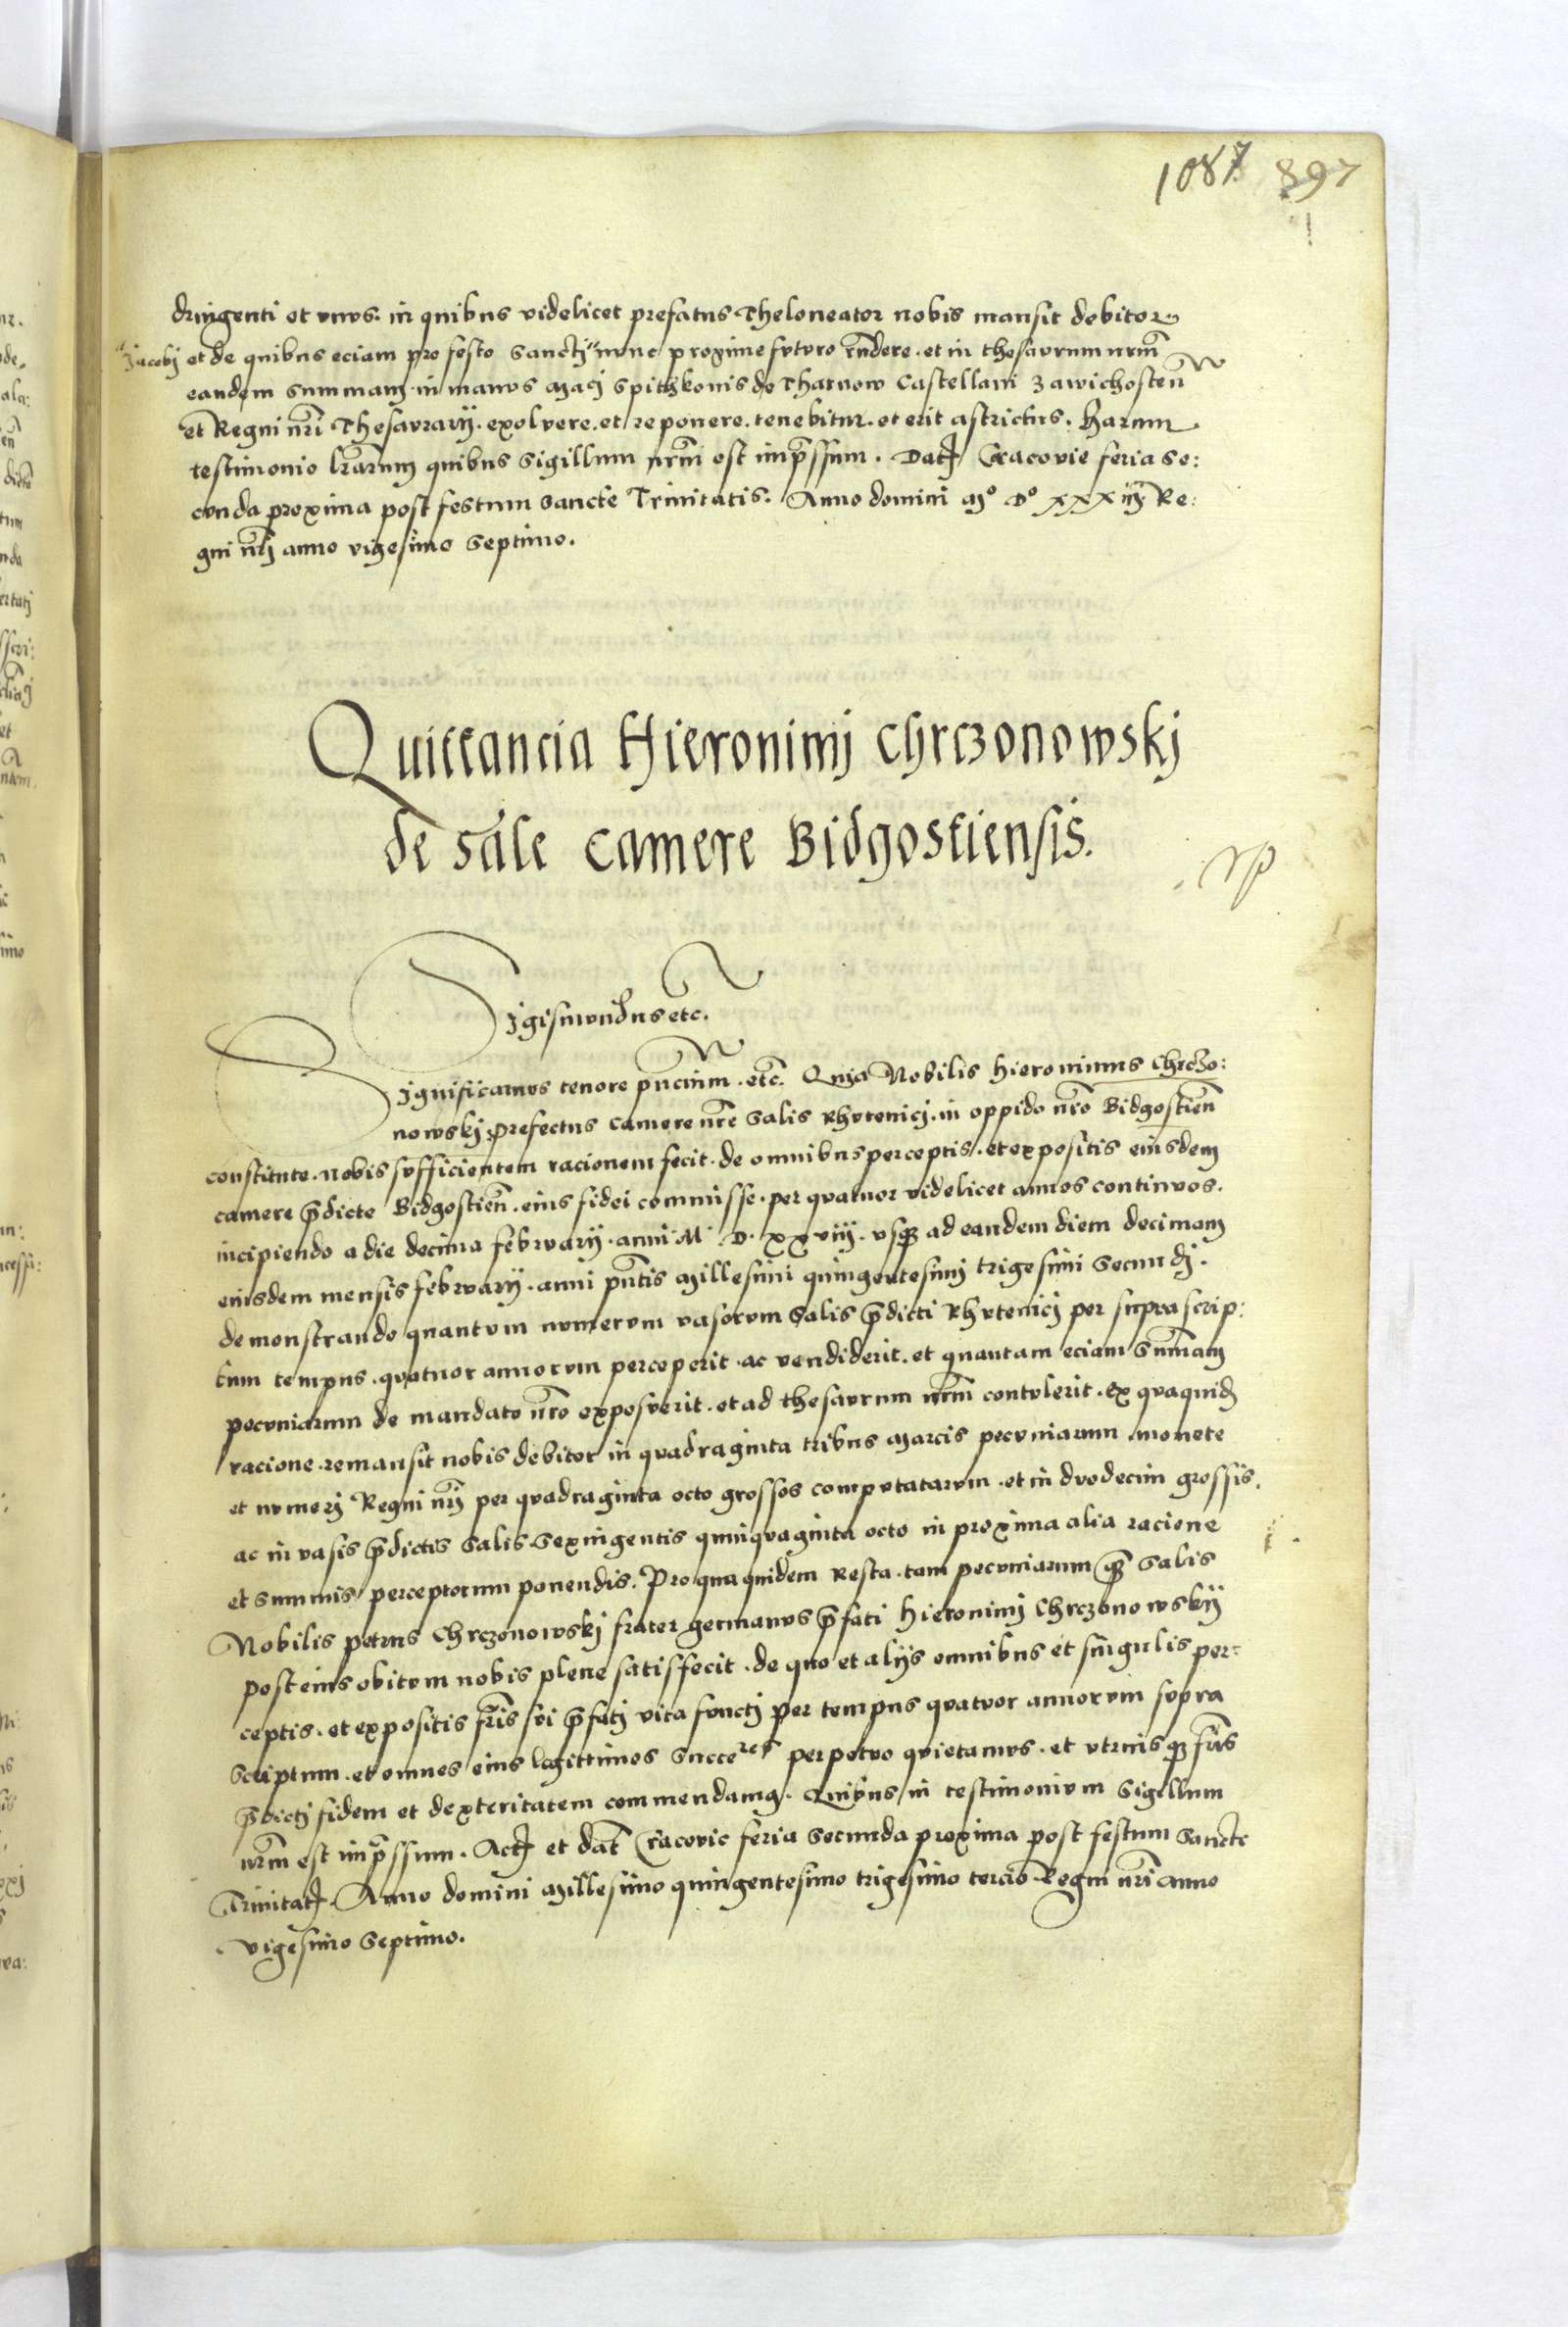 1087 897
dringenti et unus. in quibus videlicet prefatus Theloneator nobis mansit debitor
Jacobj et de quibus eciam pro festo sanctj nunc proxime futuro rñdere. et in thesaurum nr̃m
eandem summam in manus Mgcj Spithkonis de Tharnow Castellani Zawichosteñ
et Regni nr̃i Thesaurarij. exolvere. et reponere. tenebitur. et erit astrictus. Harum
testimonio lr̃arum quibus sigillum nr̃m est imp̃ssum. Datẽ Cracovie feria se:
cunda proxima post festum sancte Trinitatis. Anno domini Mº Dº XXXiij Re:
gni nr̃j anno vigesimo septimo.
Quittancia Hieronimj Chrczonowskj
de sale camere Bidgostiensis.
Sigismundus etc.
Significamus tenore pñcium. etc. Quia Nobilis Hieronimus Chrczo:
nowskj prefectus camere nr̃e salis Rhutenicj. in oppido nr̃o Bidgostieñ
constitute. nobis sufficientem racionem fecit. de omnibus perceptis. et expositis eiusdem
camere p̃dicte Bidgostieñ. eius fidei commisse. per quatuor videlicet annos continuos.
incipiendo a die decima februarij. anni M. D. XXviij. usq3 ad eandem diem decimam
eiusdem mensis februarij. anni pñtis Millesimi quingentesimj trigesimi secundj.
demonstrando quantum numerum vasorum salis p̃dicti Rhutenicj per suprascrip:
tum tempus. quatuor annorum perceperit. ac vendiderit. et quantam eciam sum̃am
pecuniarum de mandato nr̃o exposuerit. et ad thesaurum nr̃m contulerit. ex quaquid̃
racione. remansit nobis debitor in quadraginta tribus Marcis pecuniarum monete
et numerj Regni nr̃j per quadraginta octo grossos computatarum. et in duodecim grossis.
ac in vasis p̃dictis salis. sexingentis quinquaginta octo in proxima alia racione
et summis perceptorum ponendis. Pro qua quidem Resta. tam pecuniarum q̃3 salis
Nobilis petrus Chrczonowskj frater germanus p̃fati Hieronimj Chrczonowskij
post eius obitum nobis plene satisfecit. de quo et alijs omnibus et singulis per:
ceptis. et expositis fr̃is sui p̃fatj vita functj per tempus quatuor annorum supra
scriptum. et omnes eius legittimos succeres perpetuo quietamus. et utriusq3 fr̃is
p̃dictj fidem et dexteritatem commendamus. Quibus in testimonium Sigillum
nr̃m est imp̃ssum. Actẽ et dat̃ Cracovie feria secunda proxima post festum sancte
Trinitatẽ. Anno domini Millesimo quingentesimo trigesimo tercio Regni nr̃i anno
vigesimo septimo.